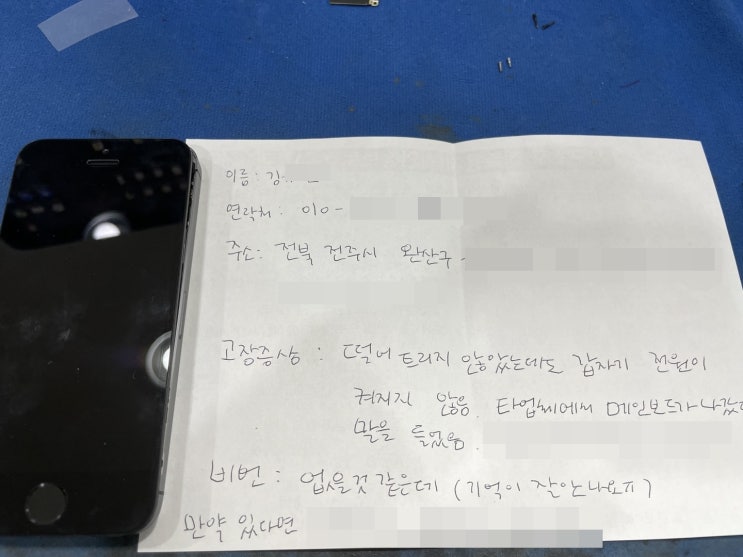 이름: 김
연락처: 010-
주소: 전북 전주시 완산구 -
고장증상 : 떨어트리지 않았는데도 갑자기 전원이
켜지지 않음. 타업체에서 메인보드가 나갔다
말을 들었음.
비번 : 없을것 같은데 (기억이 잘안나요ㅠ)
만약 있다면